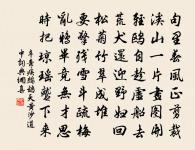 句里春風正剪裁
溪山一片畫圖開
輕鷗自趁虛船去
荒犬還迎野婦回
松菊竹翠成堆
要擎殘雪斗疏梅
亂鴉畢竟無才思
時把瓊瑤蹴下來
辛棄疾鷓鴣天黃沙道
中詞典網集